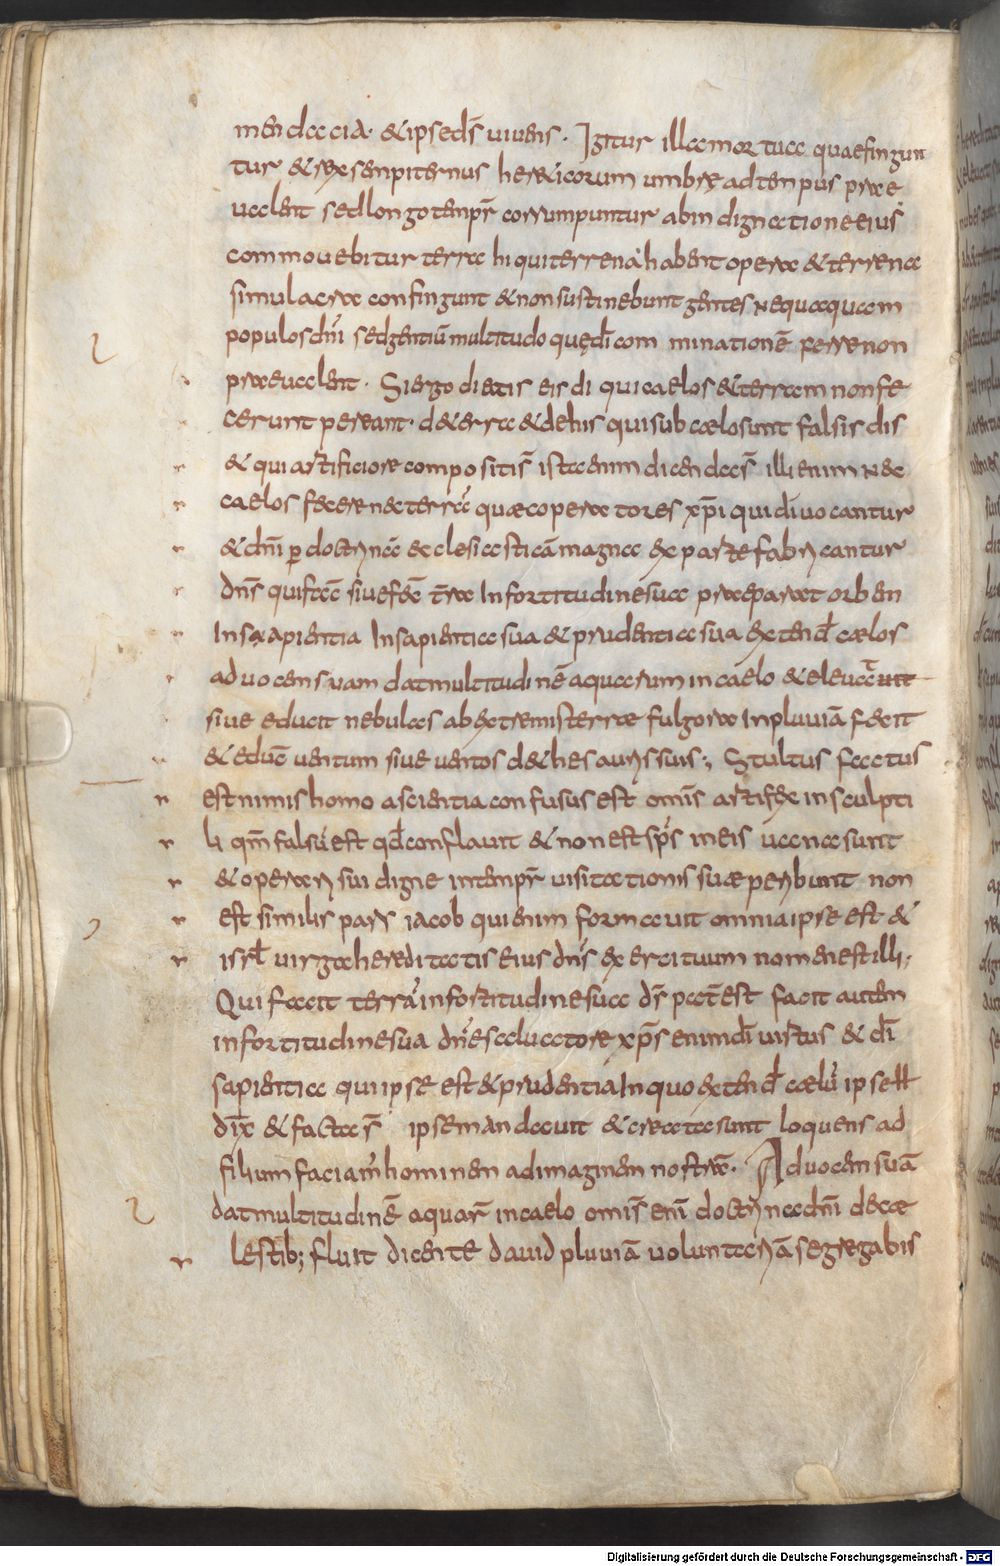 mendacia· & ipse ds̄ uiuens· Igitur illa mortua quae fingun
tur & rex senpiternus hereticorum umbrę ad tenpus prae
ualent sed longo tenpr̄ corrumpuntur ab indignatione eius
commouebitur terra hi qui terrena habent opera & terrena
simulacra confingunt & non sustinebunt gentes nequaquam
populos dn̄i sed gentiū multitudo quę dī comminationē ferre non
praeualent· Si ergo dicitis eis di qui caelos & terram non fe
cerunt pereant· de terra & de his qui sub caelo sunt falsis dis
& qui artificiore compositis̄ ista enim dicenda es̄ illi enim nec
caelos fecer̄ nec terrā quae coperatores xp̄i qui di uocantur
& dn̄i p doctrinā ecclesiasticā magna ex parte fabricantur
dn̄s qui facē siue fecē t̄ra In fortitudine sua praeparat orben
In sapientia In sapientia sua & prudentia sua extend̄ caelos
ad uocen suam dat multitudinē aquarum in caelo & eleuat
siue educit nebulas ab extremis terrae fulgora In pluuiā fecit
& educ̄ uentum siue uentos de thesauris suis; Stultus factus
est nimis homo a scientia confusus est omīs artifex in sculpti
li qm̄ falsū est qd̄ conflauit & non est sp̄s in eis uana sunt
& opera risui digne in tenpr̄ uisitationis suae peribunt non
est similis pars iacob qui enim formauit omnia ipse est &
isrl̄ uirga hereditatis eius dn̄s exercituum nomen est illi;
Qui facit terrā in fortitudine sua ds̄ pat̄ est facit auten
in fortitudine sua dn̄e saluatore xp̄s enim dī uirtus & dī
sapientia qui ipse est & prudentia In quo extend̄ caelū ipse
dix̄ & facta s̄ ipse mandauit & creata sunt loquens ad
filium faciam̄ hominen ad imaginen nostrā· Ad uocen suā
dat multitudinē aquar̄ in caelo omīs enī doctrina dn̄i de cae
lestib; fluit dicente dauid pluuiā uoluntariā segregabis
Digitalisierung gefördert durch die Deutsche Forschungsgemeinschaft - DFG